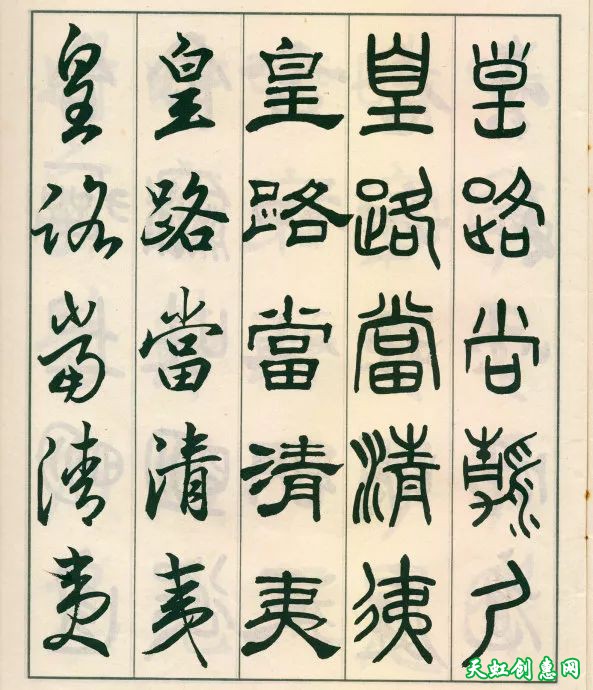 皇路尚
皇路當清夷
皇路當清夷
皇路當清夷
皇路當清夷
天虹创惠网